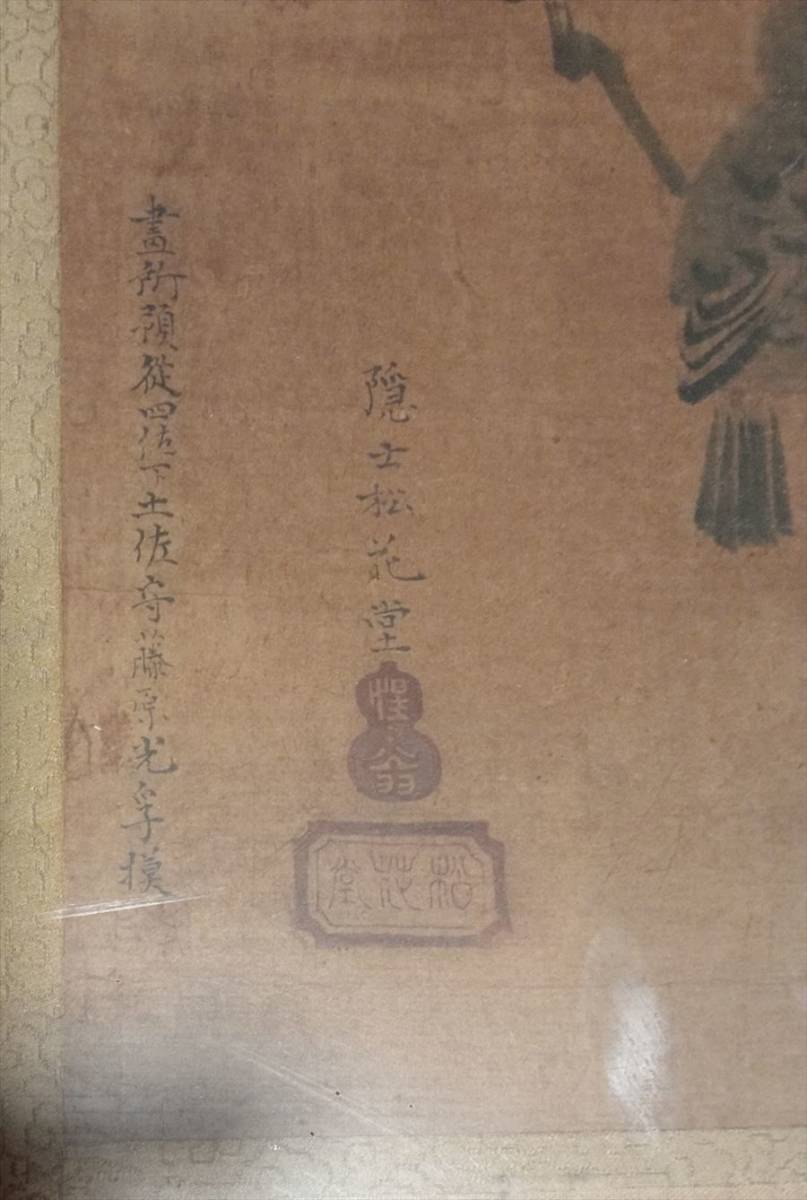 隠士松花堂
惺々翁
松花堂
畫所預從四位下土佐守藤原光孚模